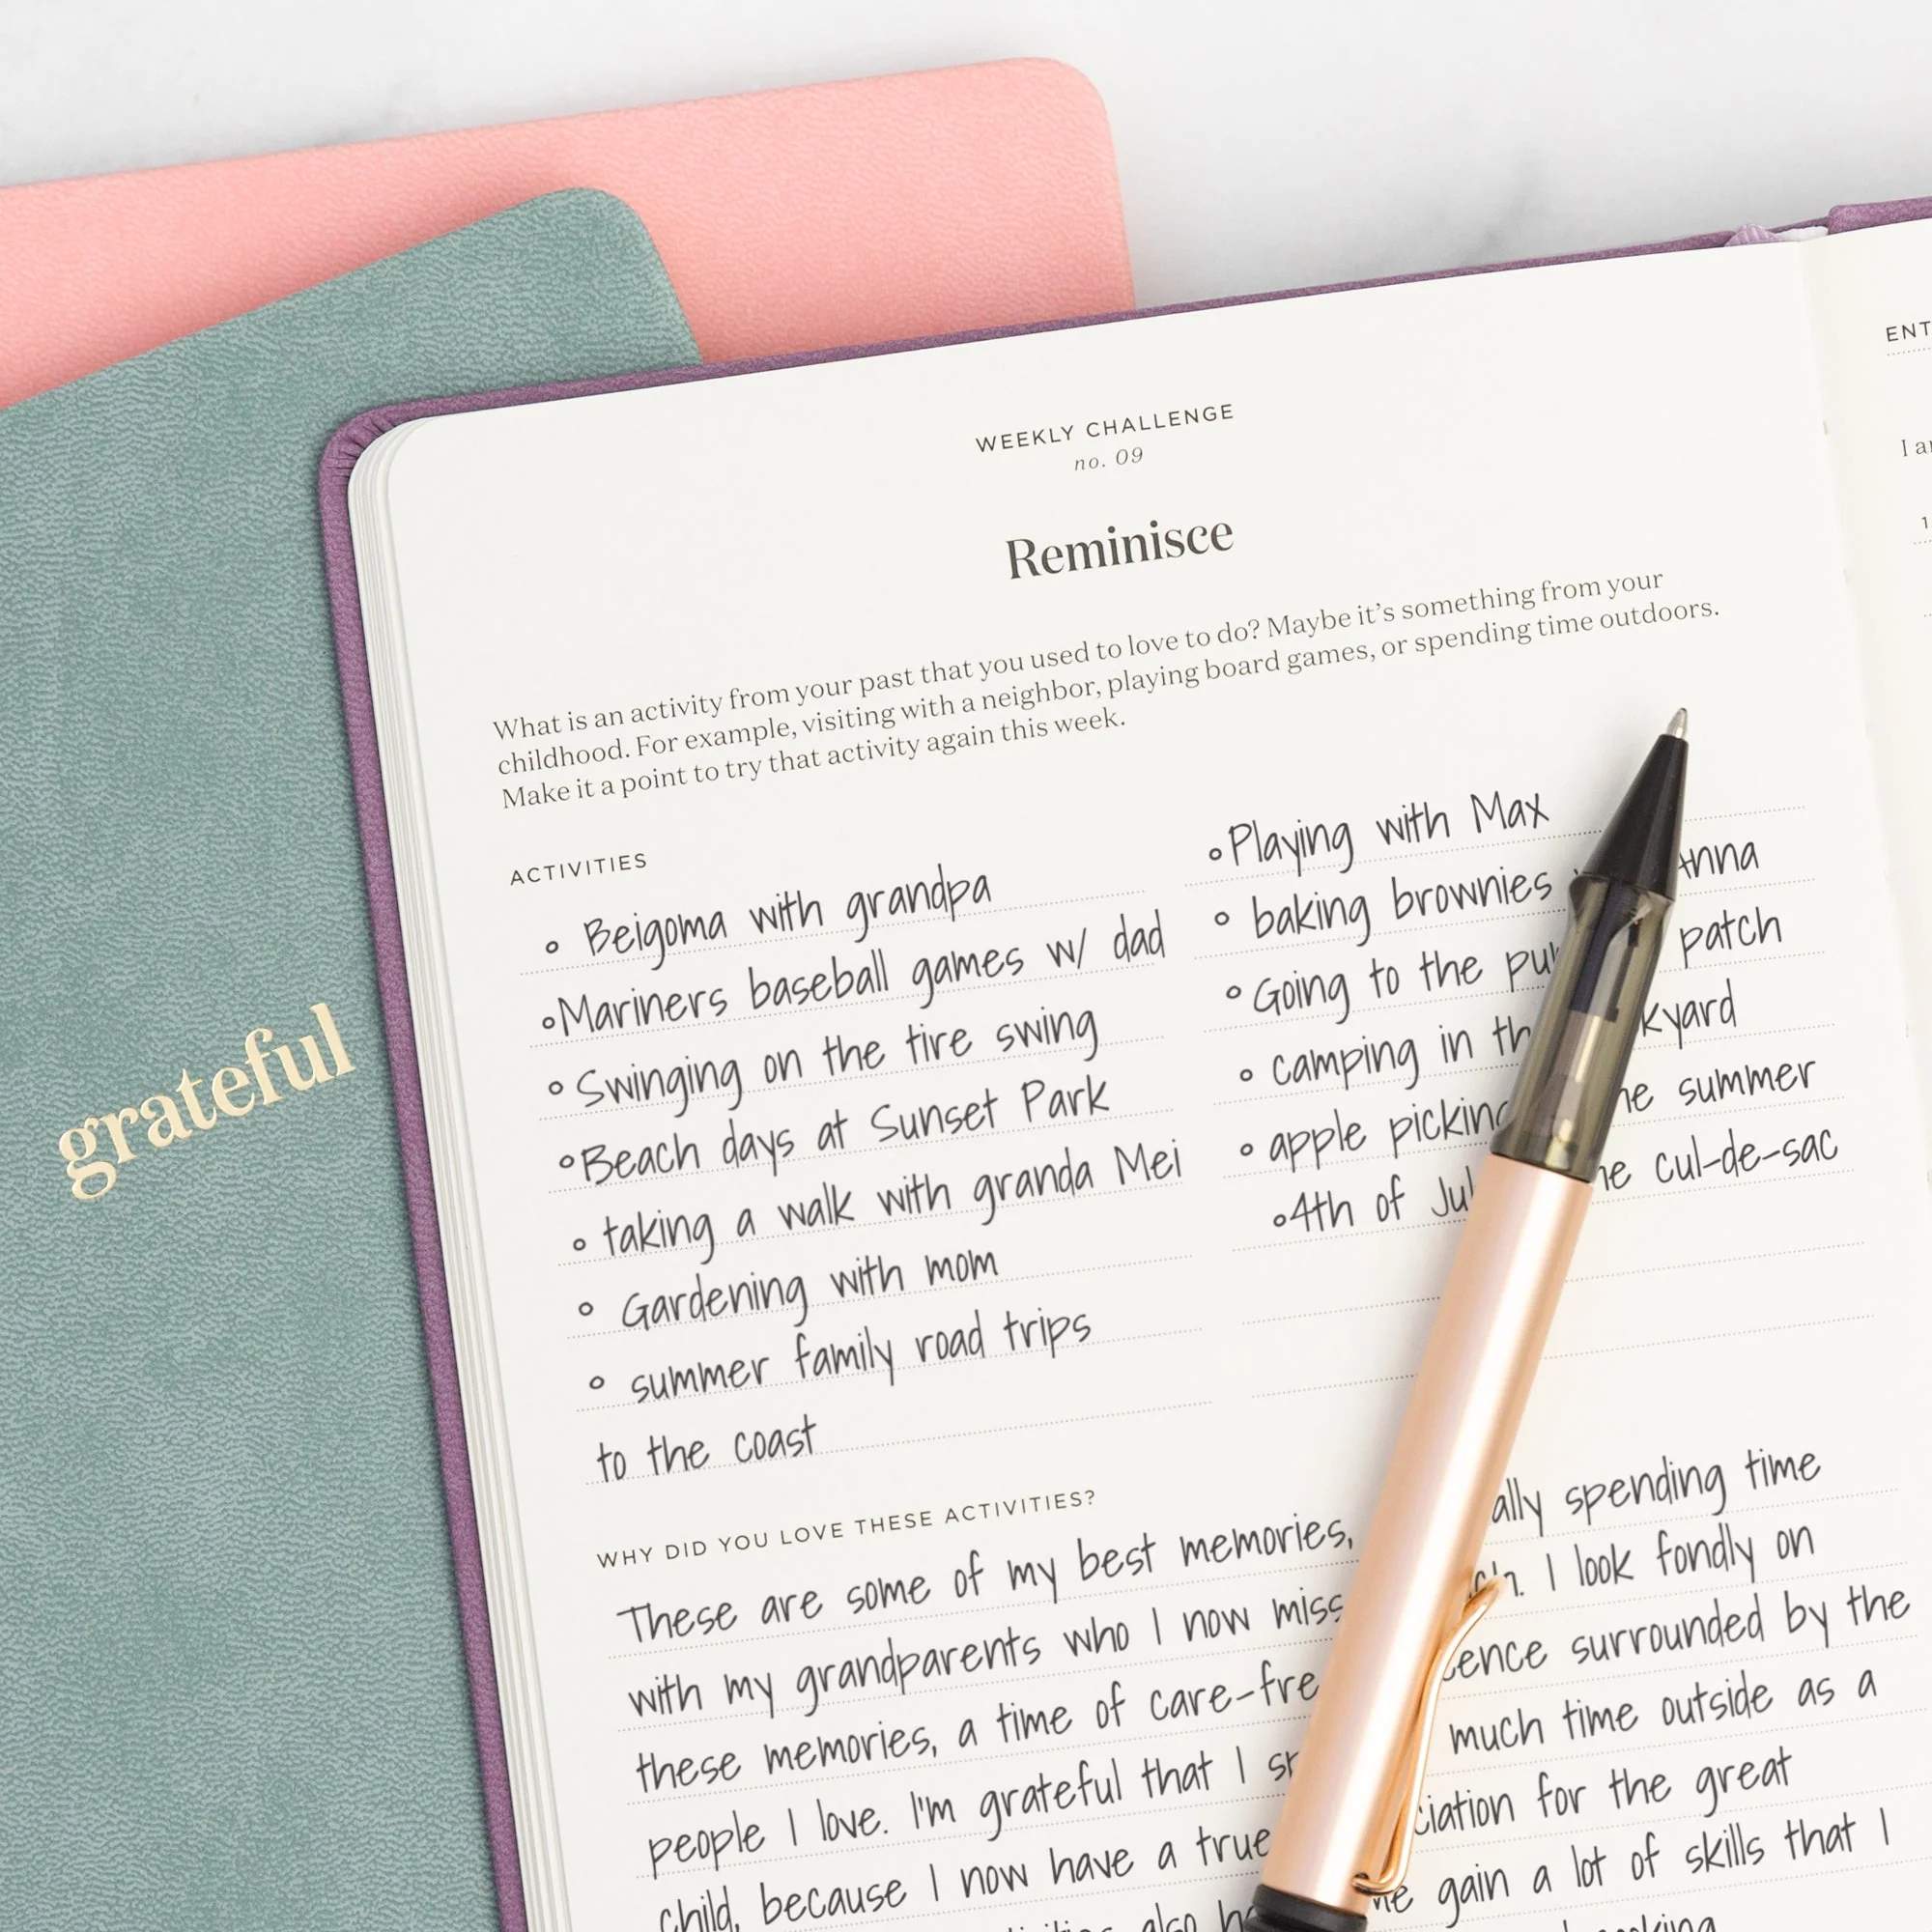 grateful
WEEKLY CHALLENGE
no. 09
Reminisce
What is an activity from your past that you used to love to do? Maybe it's something from your
childhood. For example, visiting with a neighbor, playing board games, or spending time outdoors.
Make it a point to try that activity again this week.
ACTIVITIES
• Beigoma with grandpa
• Mariners baseball games w/ dad
• Swinging on the tire swing
• Beach days at Sunset Park
• taking a walk with granda Mei
• Gardening with mom
• summer family road trips
to the coast
• Playing with Max
• baking brownies
• Going to the patch
• camping in
• apple summer
• 4th of cul-de-sac
WHY DID YOU LOVE THESE ACTIVITIES?
These are some of my best memories, spending time
with my grandparents who I now miss I look fondly on
these memories, a time of surrounded by the
people I love. I'm grateful that I much time outside as a
child, because I now have a true for the great
also gain a lot of skills that I